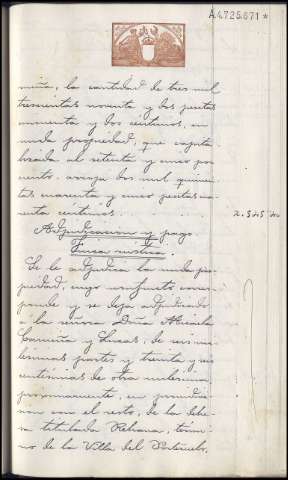 A4.725.671*
miña, la cantidad de tres mil
trescientas noventa y dos pesetas
noventa y dos céntimos, en
nuda propiedad, que capita-
lizada al setenta y cinco por
ciento, arroja dos mil quinien-
tas cuarenta y cinco pesetas cua-
renta céntimos
Adjudicación y pago
Finca rústica.
Se le adjudica la nuda pro-
piedad, cuyo usufructo corres-
ponde y se deja adjudicado
a la señora Doña Micaela
Carmiña y de seis mi-
lésimas partes y treinta y seis
centésimas de otra milésima
proximamente, en proindivi-
sion con el resto, de la dehe-
sa titulada térmi-
no de la Villa del